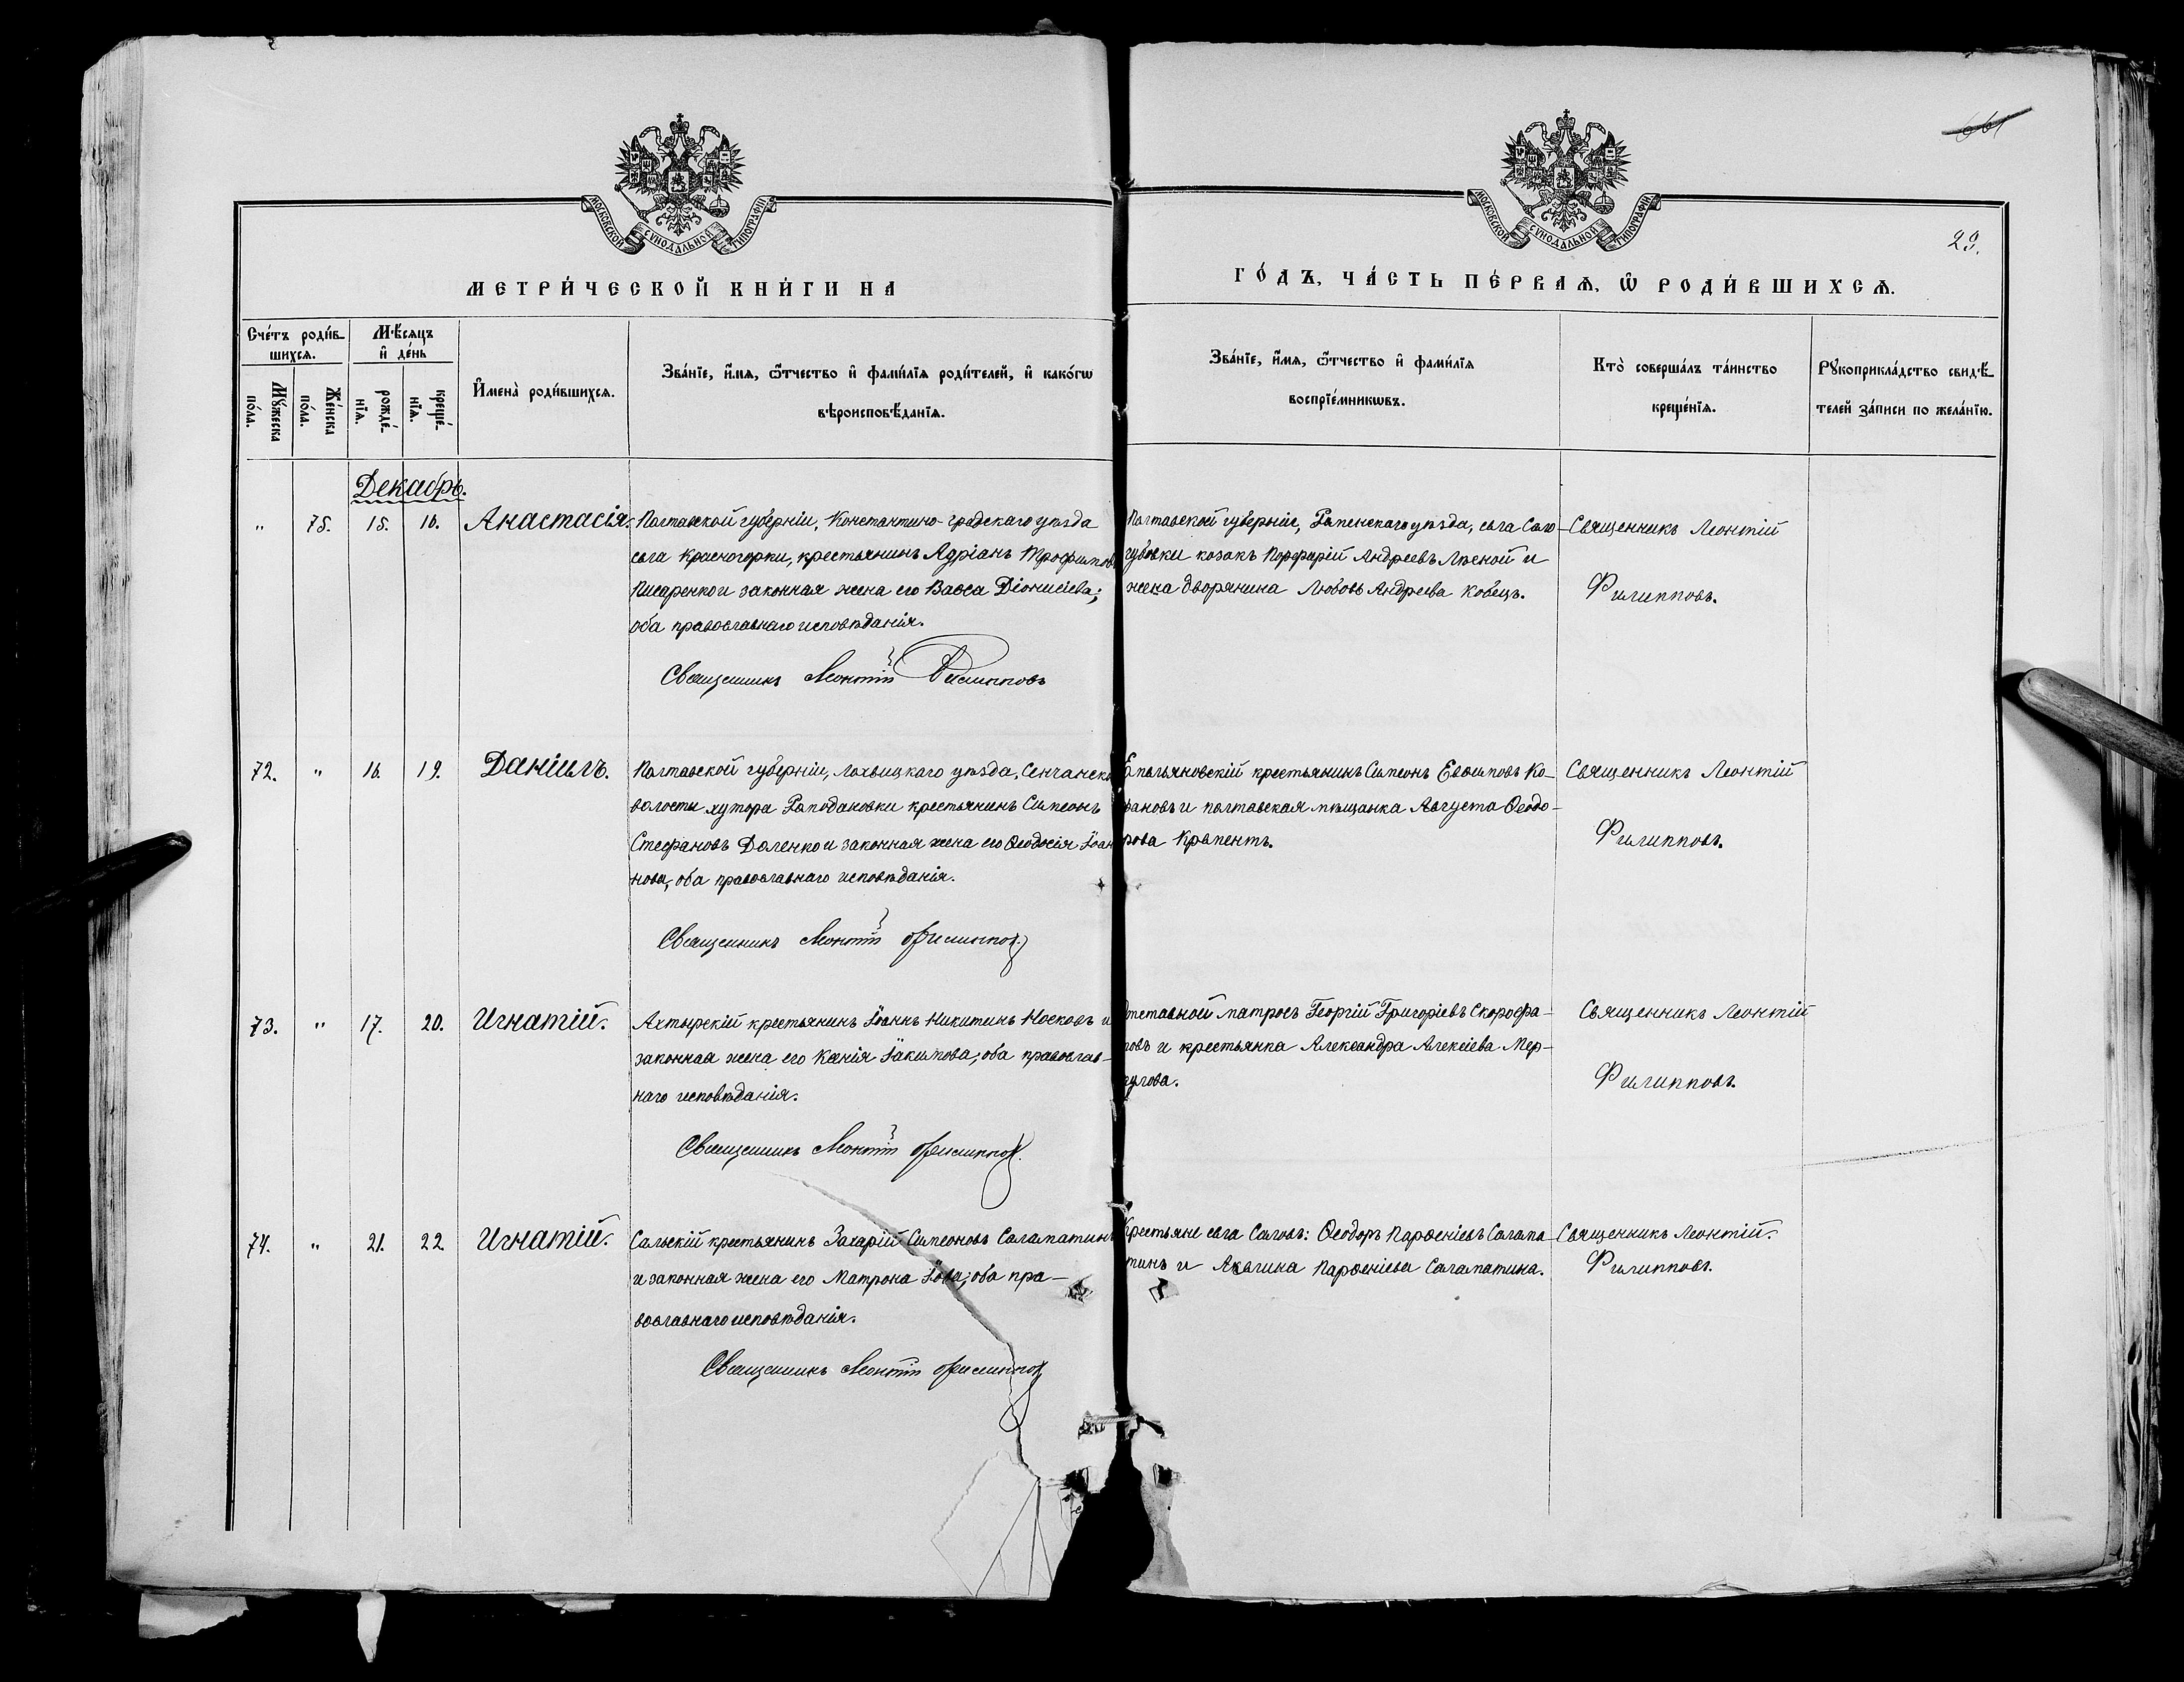 661
29.
МОСКОВСКОЙ СѴНОДАЛЬНОЙ ТИПОГРАФІИ
МОСКОВСКОЙ СѴНОДАЛЬНОЙ ТИПОГРАФІИ
МЕТРИ́ЧЕСКОЙ КНИ́ГИ НА
ГО́ДЪ, ЧА́СТЬ ПЕ́РВАѦ, Ѡ҆ РОДИ́ВШИХСѦ.
Сче́тъ роди́в-
шихсѧ.
Мѣ́сѧцъ
и҆ де́нь
Мꙋ́жеска
по́ла.
Же́нска
по́ла.
рожде́-
нїѧ.
креще́-
нїѧ.
И҆мена̀ роди́вшихсѧ.
Зва́нїе, и҆́мѧ, ѻ҆́тчество и҆ фами́лїѧ роди́телей, и҆ како́гѡ
вѣроисповѣ́данїѧ.
Зва́нїе, и҆́мѧ, ѻ҆́тчество и҆ фами́лїѧ
воспрїе́мникѡвъ.
Кто̀ соверша́лъ та́инство
креще́нїѧ.
Рꙋкоприкла́дство свидѣ́-
телей за́писи по жела́нїю.
Декабрь.
" 75. 15. 16. Анастасія.
Полтавской губерніи, Константино-градскаго уѣзда
села Красногорки, крестьянинъ Адріанъ Трофимовъ
Писаренко и законная жена его Васса Діонисіева;
оба православнаго исповѣданія.
Священникъ Леонтій Филипповъ
Полтавской губерніи, Роменскаго уѣзда, села
губовки козакъ Порфирій Андреевъ Лѣсной и
жена дворянина Любовь Андреева Ковецъ.
Священникъ Леонтій
Филипповъ.
72. " 16. 19. Даніилъ.
Полтавской губерніи, Лохвицкаго уѣзда, Сенчанской
волости хутора Ромодановки крестьянинъ Симеонъ
Стефановъ Доленко и законная жена его Ѳеодосія Іоан
нова, оба православнаго исповѣданія.
Священникъ Леонтій Филипповъ
Емельяновскій крестьянинъ Симеонъ Евѳимовъ Ко-
фановъ и полтавская мѣщанка Августа Ѳеодо-
рова Крементъ.
Священникъ Леонтій
Филипповъ.
73. " 17. 20. Игнатій.
Ахтырскій крестьянинъ Іоаннъ Никитинъ Носковъ и
законная жена его Ксенія Іакимова; оба православ-
наго исповѣданія.
Священникъ Леонтій Филипповъ
Отставной матросъ Георгій Григоріевъ Скорофа-
товъ и крестьянка Александра Алексіева Мер-
кулова.
Священникъ Леонтій
Филипповъ.
74. " 21. 22 Игнатій.
Сальскій крестьянинъ Захарій Симеоновъ Саламатинъ
и законная жена его Матрона Іова; оба пра-
вославнаго исповѣданія.
Священникъ Леонтій Филипповъ
Крестьяне села Саловъ: Ѳеодоръ Парѳеніевъ Салама-
тинъ и Акилина Парѳеніева Саламатина.
Священникъ Леонтій.
Филипповъ.